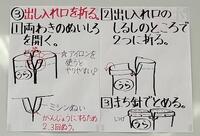 ③出し入れ口を折る。
１ 両わきのぬいしろを開く。
☆アイロンを使うとやりやすい♪
うら
ミシンぬい
がんじょうにするため
2、3回ぬう。
２ 出し入れ口の
しるしのところで
2つに折る。
うら
３ まち針でとめる。
うら